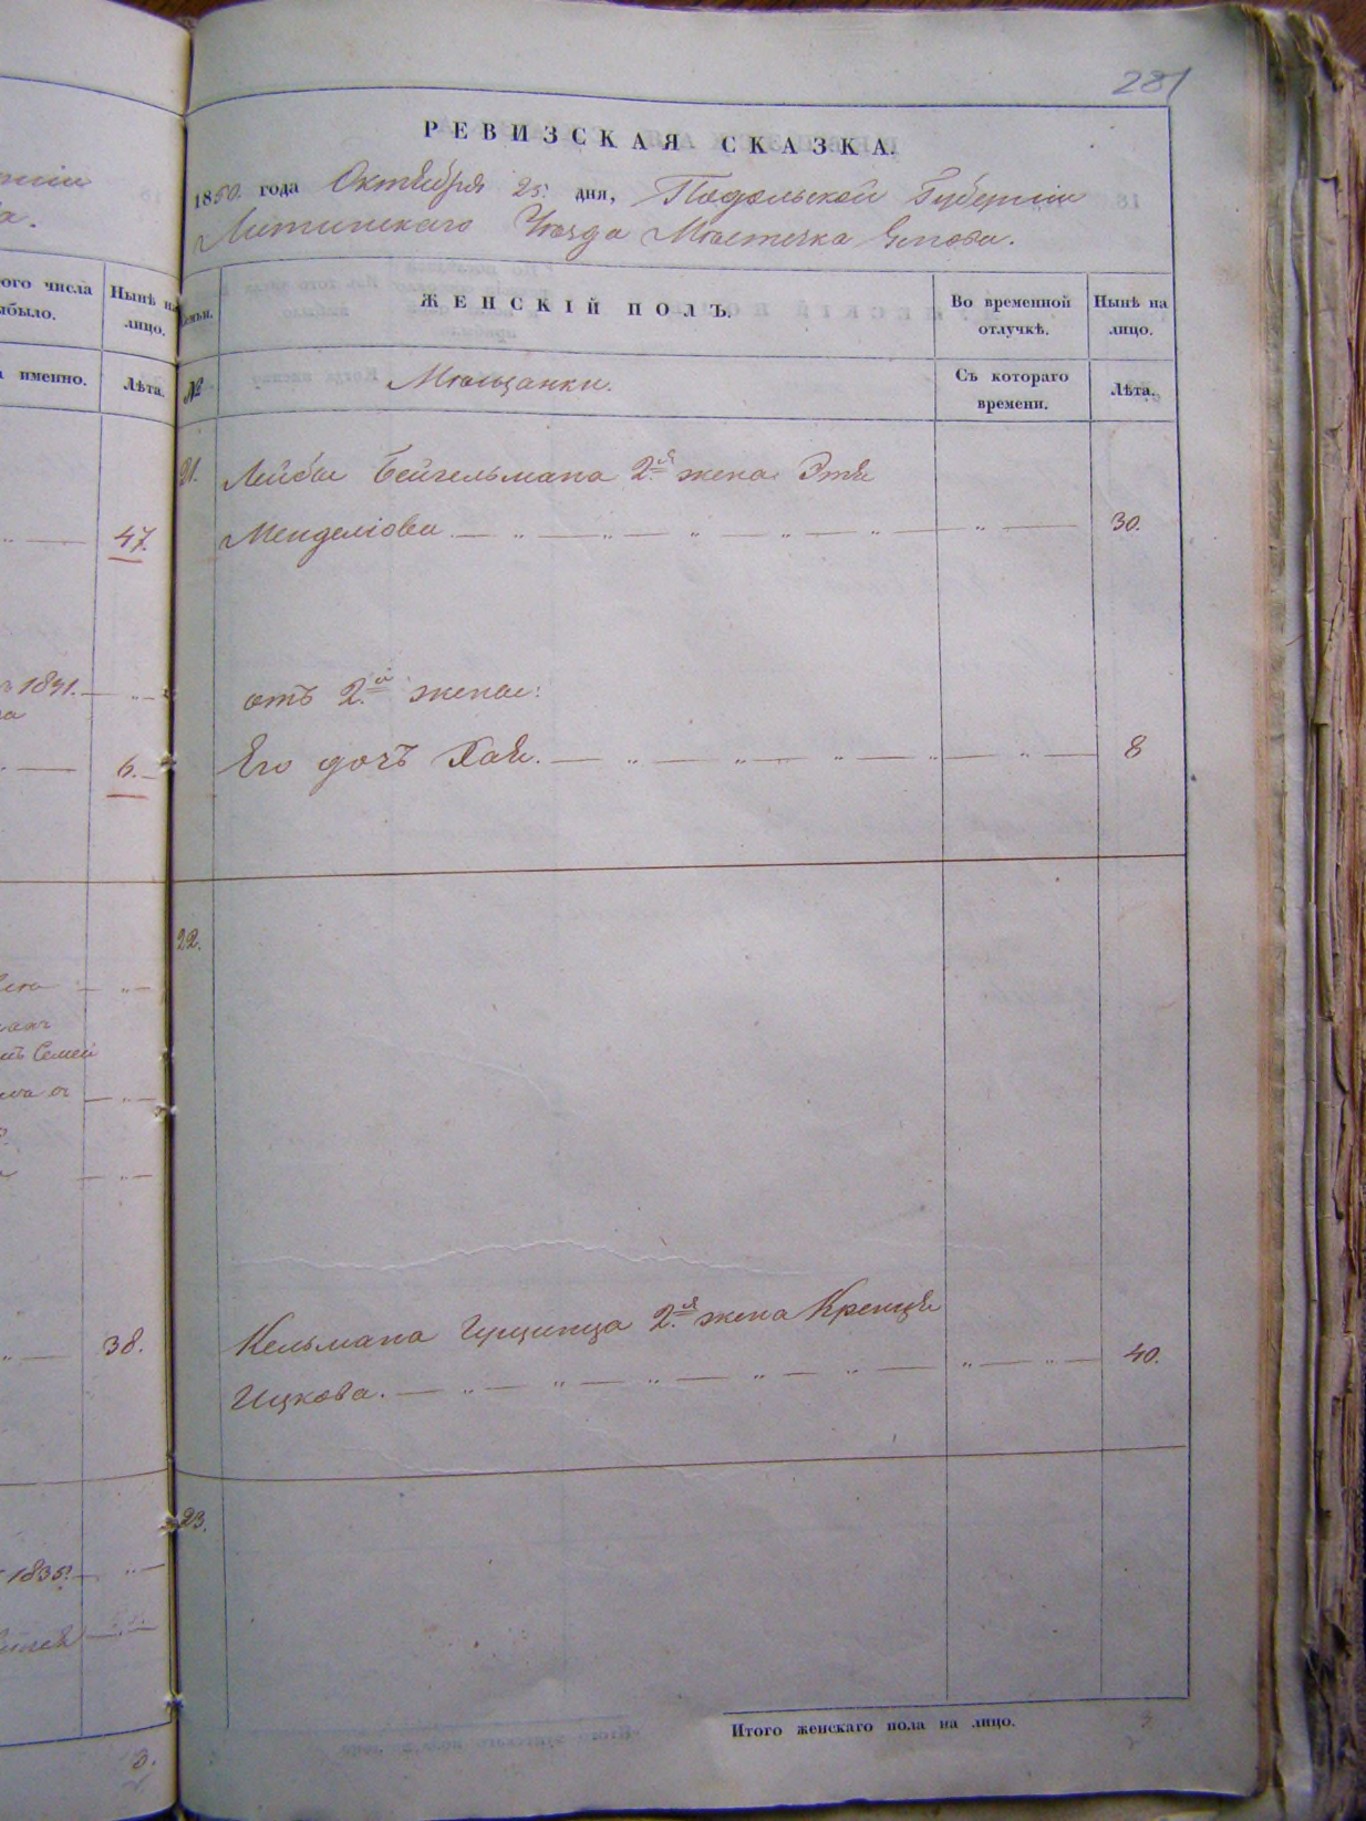 281
РЕВИЗСКАЯ СКАЗКА.
1850. года Октября 25. дня, Подольской Губерніи
Литинскаго Уѣзда Мѣстечка Янова.
ого числа
ыбыло.
Нынѣ на
лицо.
а именно.
Лѣта.
Семьи.
ЖЕНСКІЙ ПОЛЪ.
Во временной
отлучкѣ.
Нынѣ на
лицо.
№
Мѣщанки.
Съ котораго
времени.
Лѣта.
21. Лейбы Бейгельмана 2я жена Этя
Менделіова 30.
47.
1831.
отъ 2й жены:
Его дочъ Хая. 8
6.
22.
Семей
38.
Кельмана 2я жена Кренця
Ицкова. 40.
23.
1835
Итого женскаго пола на лицо. 3
3.